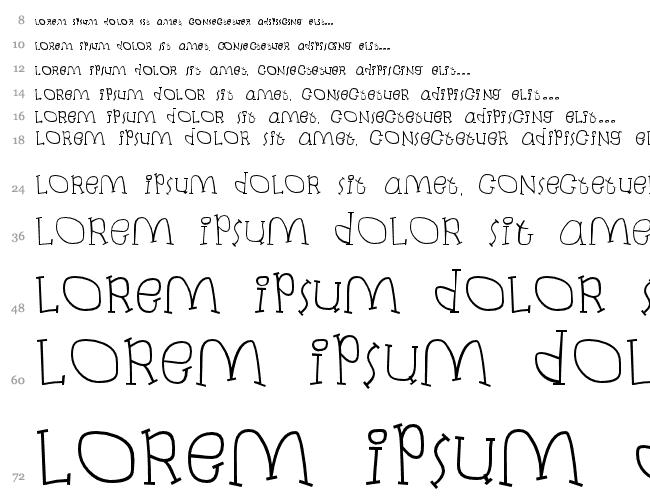 8 LOREM IPSUM DOLOR SIT AMET, CONSECTETUER ADIPISCING ELIT...
10 LOREM IPSUM DOLOR SIT AMET, CONSECTETUER ADIPISCING ELIT...
12 LOREM IPSUM DOLOR SIT AMET, CONSECTETUER ADIPISCING ELIT...
14 LOREM IPSUM DOLOR SIT AMET, CONSECTETUER ADIPISCING ELIT...
16 LOREM IPSUM DOLOR SIT AMET, CONSECTETUER ADIPISCING ELIT...
18 LOREM IPSUM DOLOR SIT AMET, CONSECTETUER ADIPISCING EL
24 LOREM IPSUM DOLOR SIT AMET, CONSECTETUE
36 LOREM IPSUM DOLOR SIT AME
48 LOREM IPSUM DOLOR S
60 LOREM IPSUM DOL
72 LOREM IPSUM